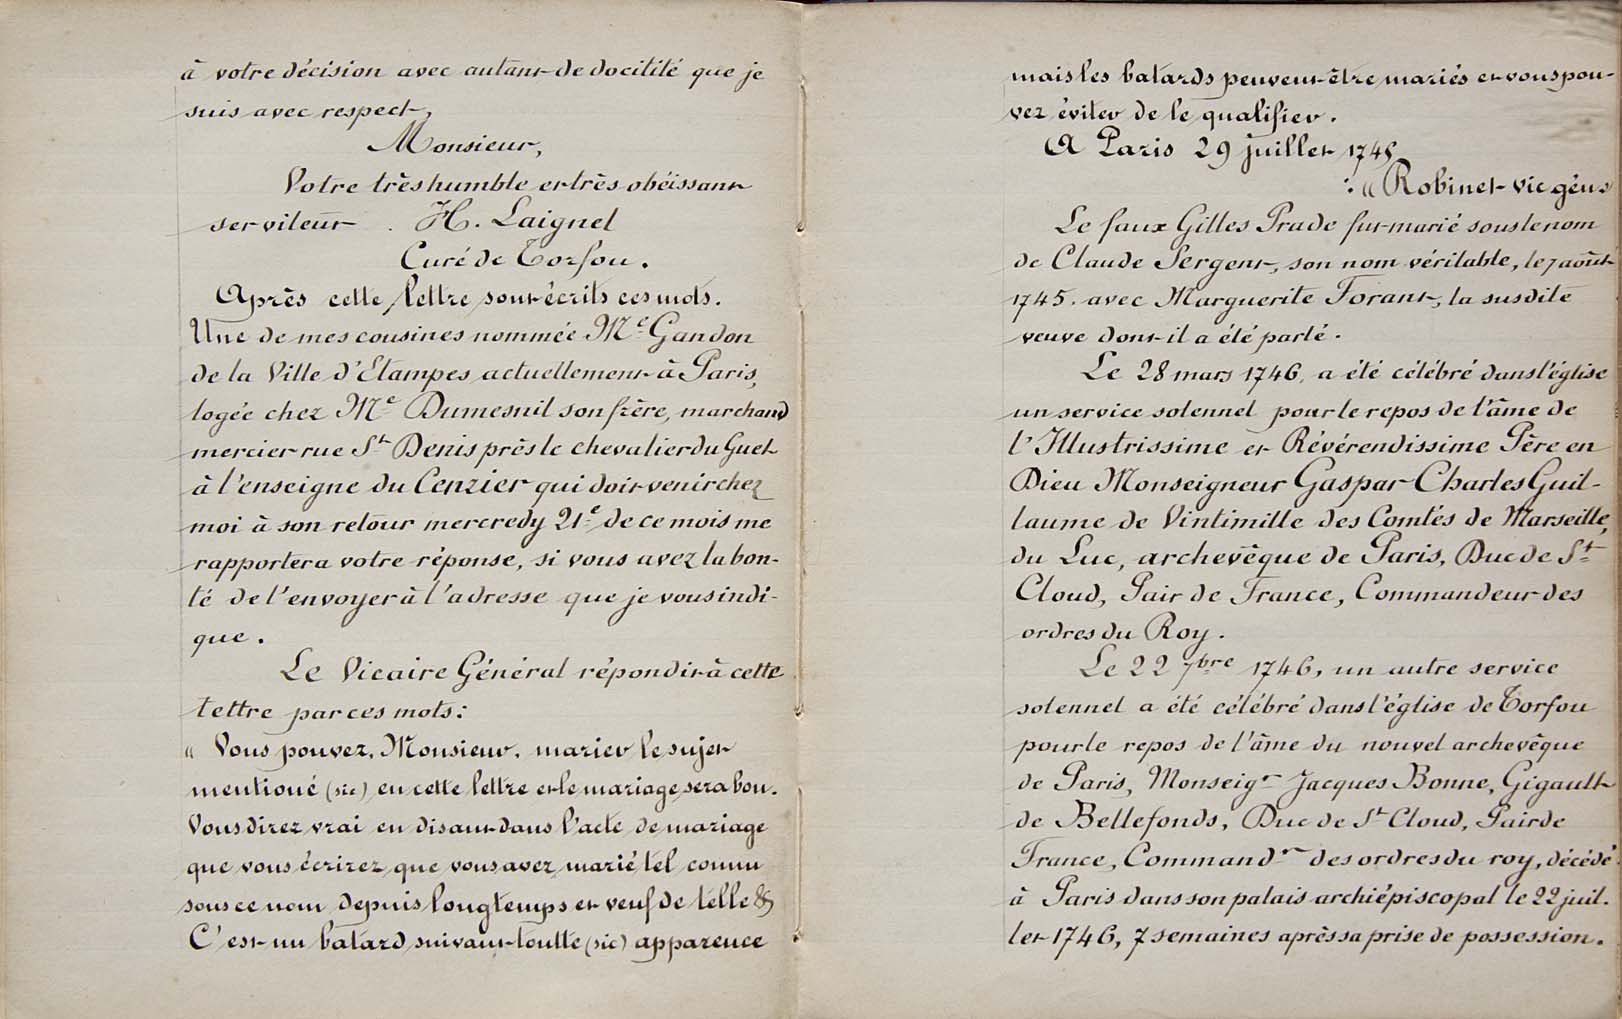 à votre décision avec autant de docilité que je
suis avec respect,
Monsieur,
Votre très humble et très obéissant
serviteur . H. Laignel
Curé de Torfou.
Après cette lettre sont écrits ces mots.
Une de mes cousines nommée Me Gandon
de la Ville d'Etampes actuellement à Paris,
logée chez Me Dumesnil son frère, marchand
mercier rue St Denis près le chevalier du Guet
à l'enseigne du Cerizier qui doit venir chez
moi à son retour mercredy 21e de ce mois me
rapportera votre réponse, si vous avez la bon-
té de l'envoyer à l'adresse que je vous indi-
que.
Le Vicaire Général répondit à cette
lettre par ces mots:
« Vous pouvez, Monsieur, marier le sujet
mentioné (sic) en cette lettre et le mariage sera bon.
Vous direz vrai en disant dans l'acte de mariage
que vous écrirez que vous avez marié tel connu
sous ce nom depuis longtemps et veuf de telle &
C'est un batard suivant toutte (sic) apparence
mais les batards peuvent être mariés et vous pou-
vez éviter de le qualifier.
A Paris 29 juillet 1745
:« Robinet vic géns
Le faux Gilles Prade fut marié sous le nom
de Claude Sergent, son nom véritable, le 7 août
1745. avec Marguerite Forant, la susdite
veuve dont il a été parlé.
Le 28 mars 1746, a été célébré dans l'église
un service solennel pour le repos de l'âme de
l'Illustrissime et Révérendissime Père en
Dieu Monseigneur Gaspar Charles Guil-
laume de Vintimille des Comtés de Marseille,
du Luc, archevêque de Paris, Duc de St
Cloud, Pair de France, Commandeur des
ordres du Roy.
Le 22 7bre 1746, un autre service
solennel a été célébré dans l'église de Torfou
pour le repos de l'âme du nouvel archevêque
de Paris, Monseigr Jacques Bonne, Gigault
de Bellefonds, Duc de St Cloud, Pair de
France, Commandr des ordres du roy, décédé
à Paris dans son palais archiépiscopal le 22 juil.
let 1746, 7 semaines après sa prise de possession.